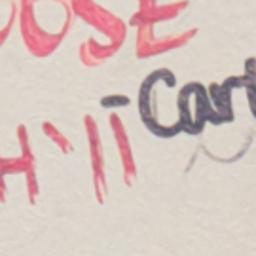 OOSE
Hill -Cart